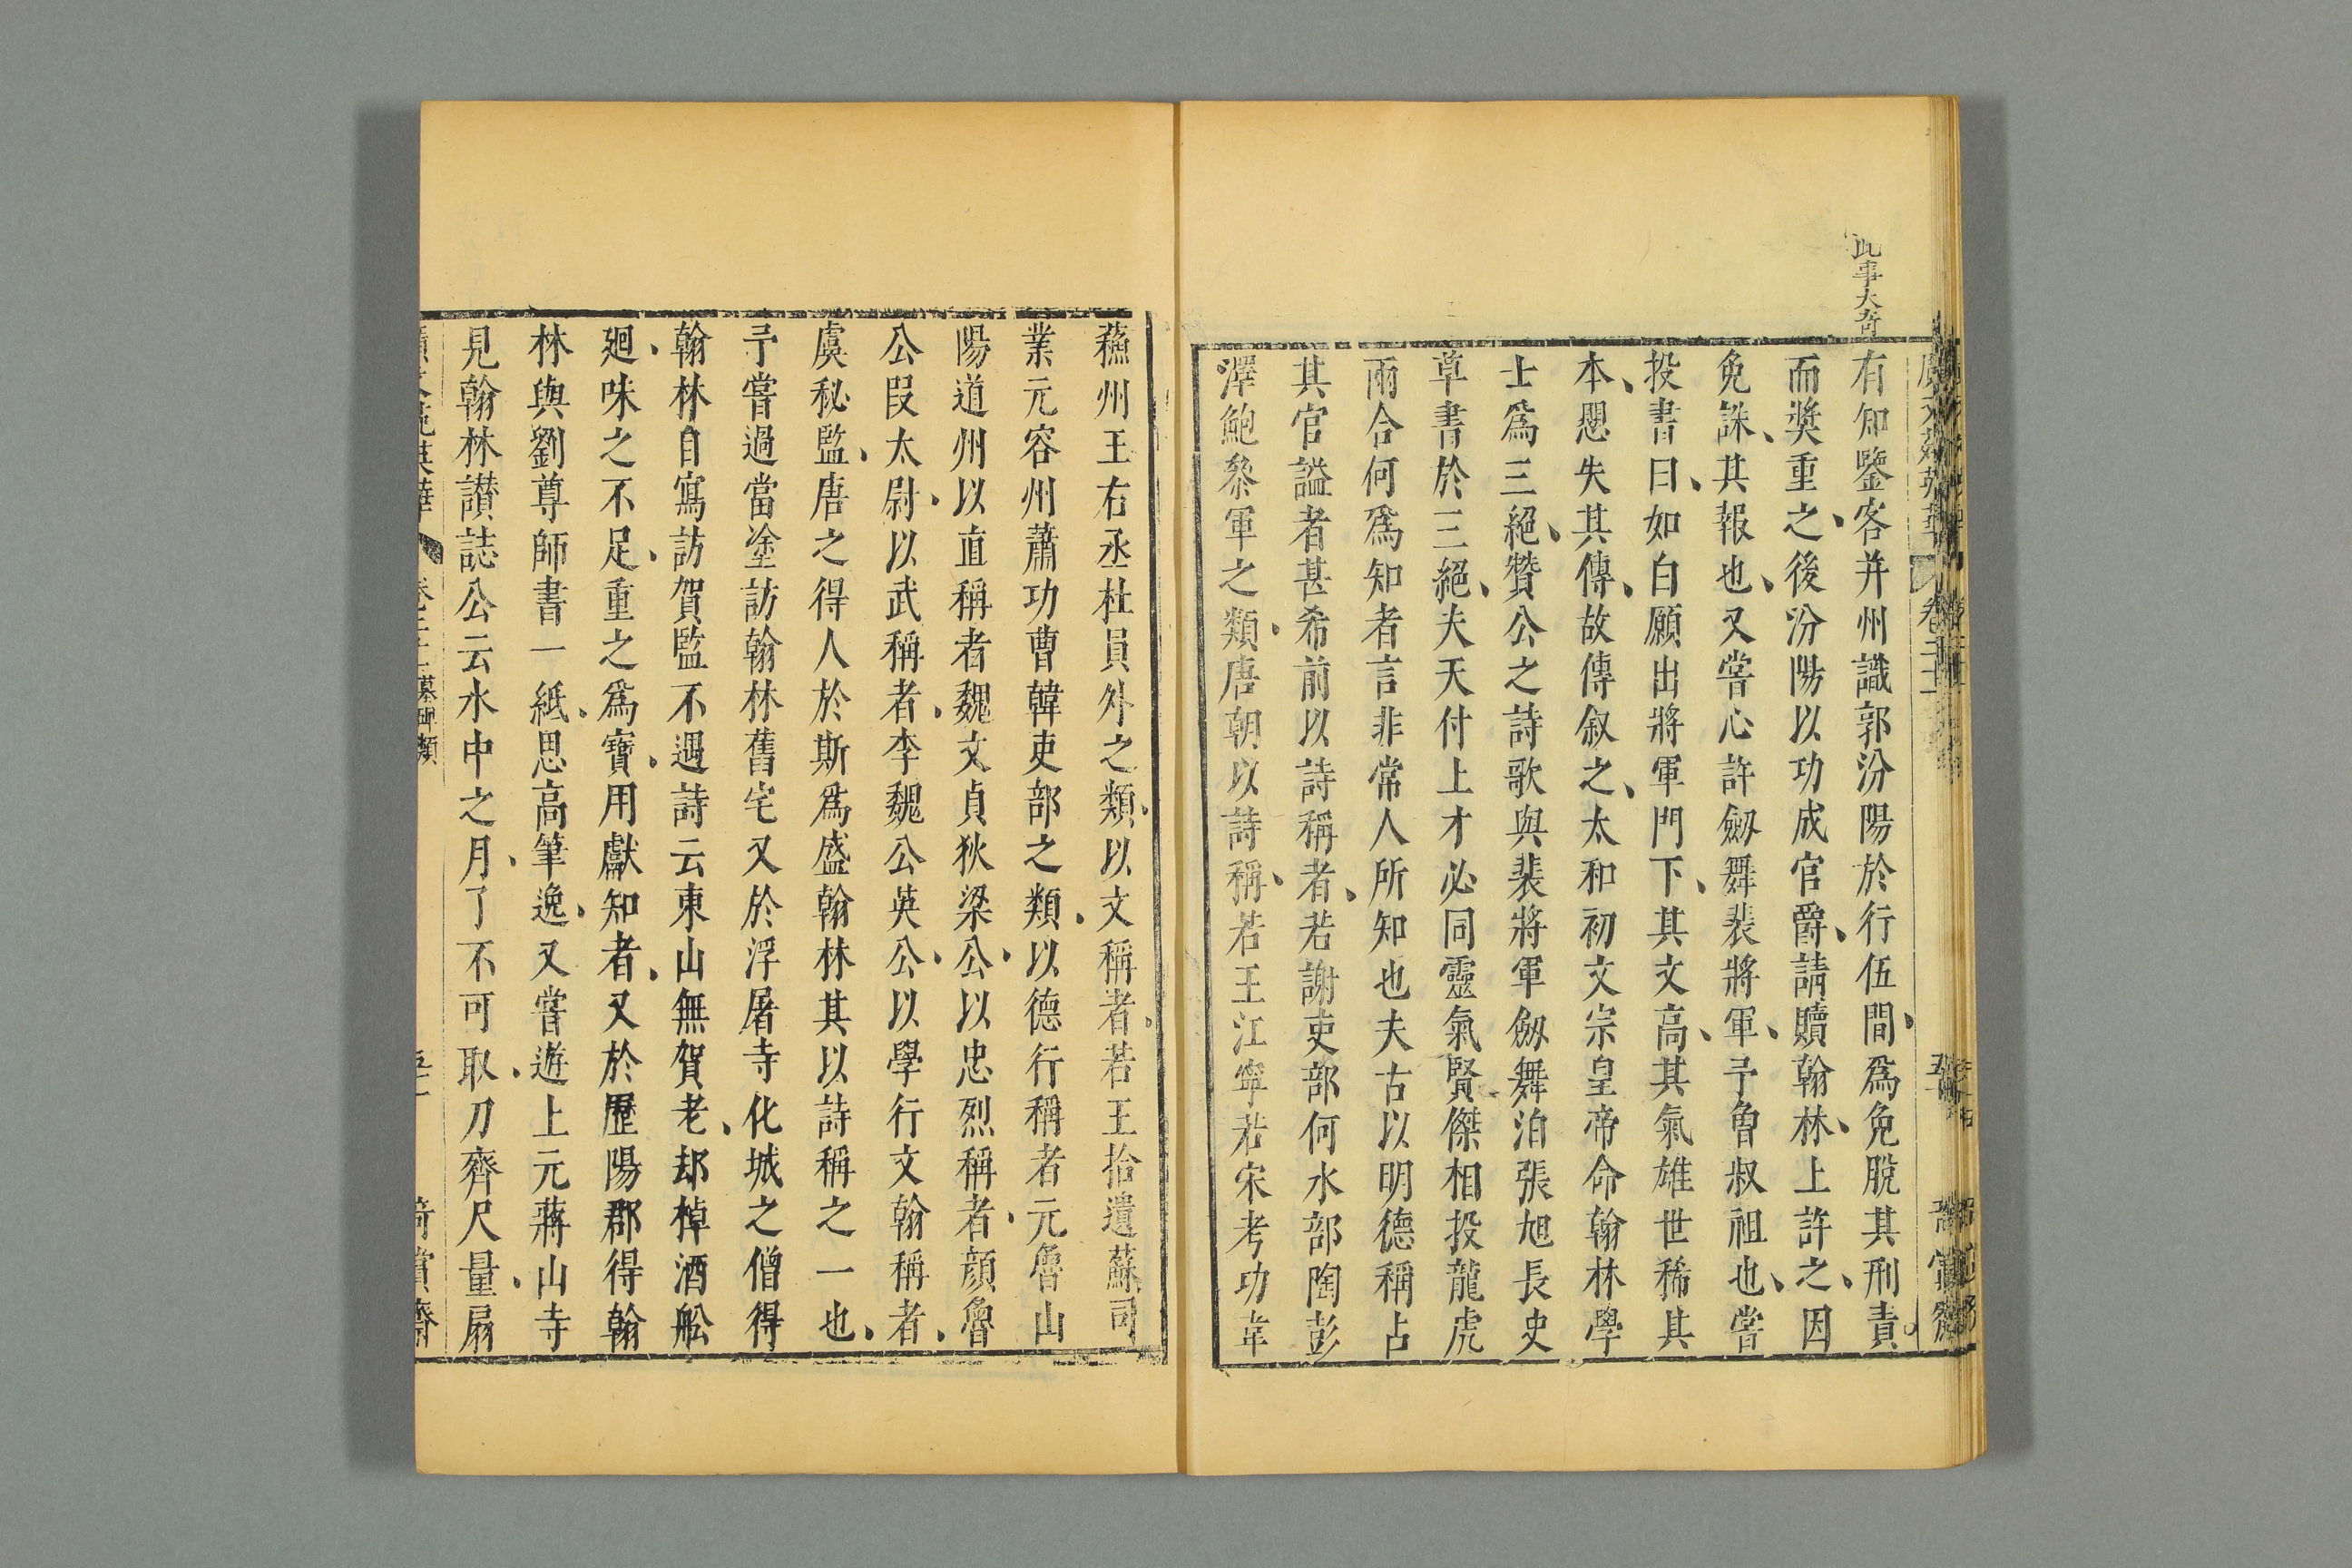 此事大奇
有知鑒客并州識郭汾陽於行伍間、爲免脫其刑責。
而奬重之、後汾陽以功成官爵、請贖翰林、上許之、因
免誅、其報也、又嘗心許劒舞裴將軍、予魯叔祖也、嘗
投書曰、如白願出將軍門下、其文高、其氣雄世稀其
本、懇失其傳、故傳叙之、太和初文宗皇帝命翰林學
士爲三絕、贊公之詩歌與裴將軍劒舞洎張旭長史
草書於三絕、夫天付上才必同靈氣賢傑相投龍虎
兩合何爲知者言非常人所知也夫古以明德稱占
其官謚者甚希前以詩稱者、若謝吏部何水部陶彭
澤鮑叅軍之類、唐朝以詩稱、若王江寧若宋考功韋
蘓州王右丞杜員外之類、以文稱者。若王拾遺蘇司
業元容州蕭功曹韓吏部之類、以德行稱者元魯山
陽道州以直稱者魏文貞狄梁公、以忠烈稱者、顔魯
公叚太尉、以武稱者、李魏公英公、以學行文翰稱者、
虞秘監、唐之得人於斯爲盛翰林其以詩稱之一也、
予嘗過當塗訪翰林舊宅又於浮屠寺化城之僧得
翰林自寫訪賀監不遇詩云東山無賀老、却棹酒舩
廻、味之不足、重之爲寶、用獻知者、又於歷陽郡得翰
林與劉尊師書一紙、思高筆逸、又嘗遊上元蔣山寺
見翰林讃誌公云水中之月、了不可取、刀齊尺量、扇
卷二十二 墓碑類
奇賞齋